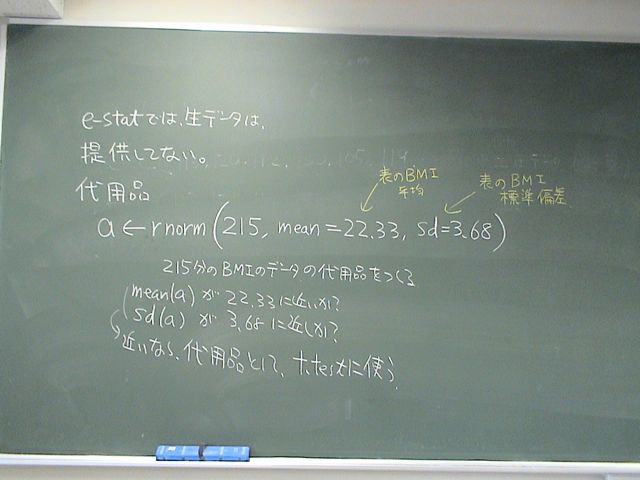 e-statでは、生データは、
提供してない。
代用品
表のBMI
平均
表のBMI
標準偏差
a ← rnorm (215, mean = 22.33, sd=3.68)
215分のBMIのデータの代用品をつくる
mean(a) が 22.33に近いか?
sd(a) が 3.68に近いか?
近いなら、代用品として、t.testに使う